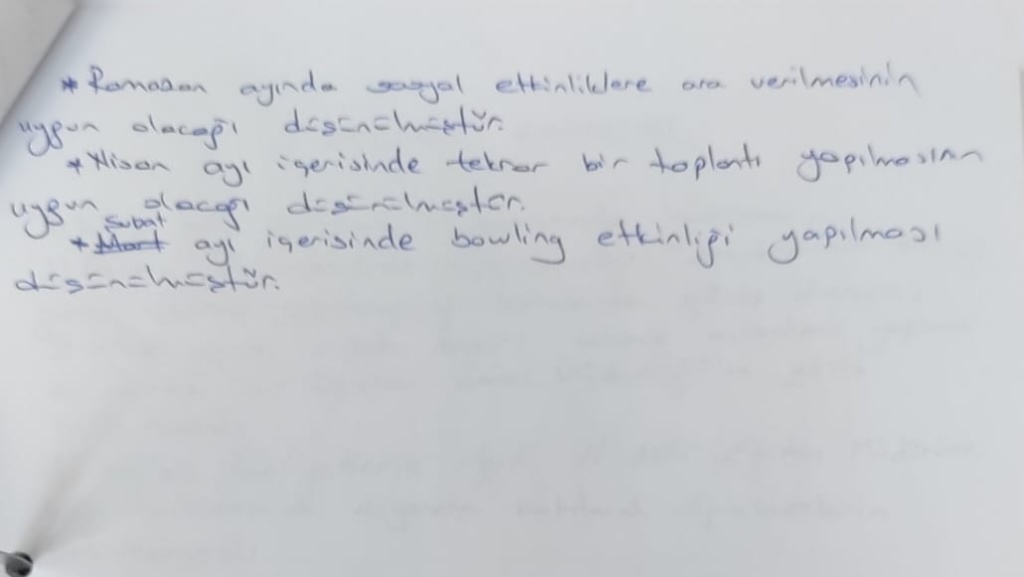 * Ramazan ayında sosyal etkinliklere ara verilmesinin
uygun olacağı düşünülmüştür.
* Nisan ayı içerisinde tekrar bir toplantı yapılmasının
uygun olacağı düşünülmüştür.
* Şubat ayı içerisinde bowling etkinliği yapılması
düşünülmüştür.